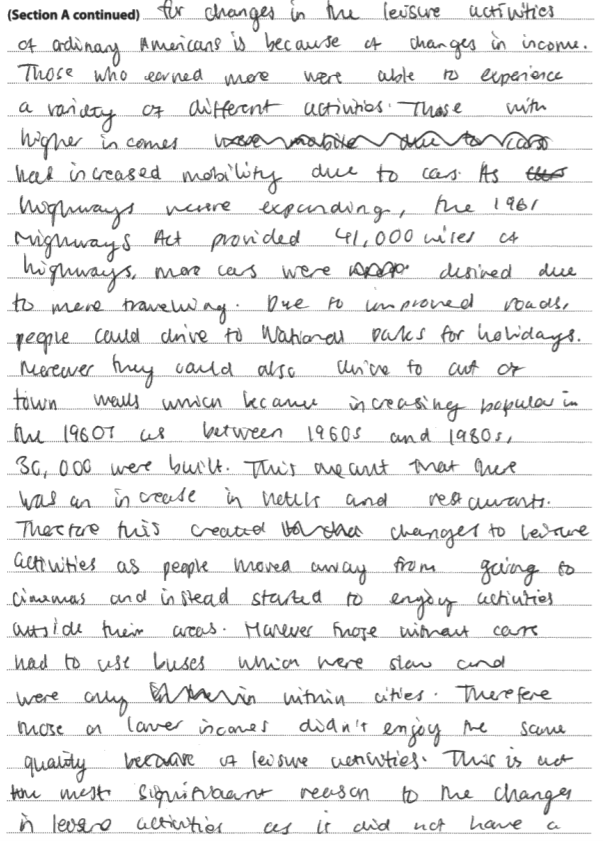 (Section A continued) for changes in the leisure activities
of ordinary Americans is because of changes in income.
Those who earned more were able to experience
a variety of different activities. Those with
higher incomes were mobile due to cars
had increased mobility due to cars. As
highways were expanding, the 1961
Highways Act provided 41,000 miles of
highways, more cars were desired due
to more travelling. Due to improved roads,
people could drive to National Parks for holidays.
Moreover they could also drive to out of
town malls which became increasing popular in
the 1960s as between 1960s and 1980s,
30,000 were built. This meant that there
was an increase in hotels and restaurants.
Therfore this created changes to leisure
activities as people moved away from going to
cinemas and instead started to enjoy activities
outside their areas. However those without cars
had to use buses which were slow and
were only within cities. Therefore
those on lower incomes didn't enjoy the same
quality of leisure activities. This is not
the most significant reason to the changes
in leisure activities as it did not have a